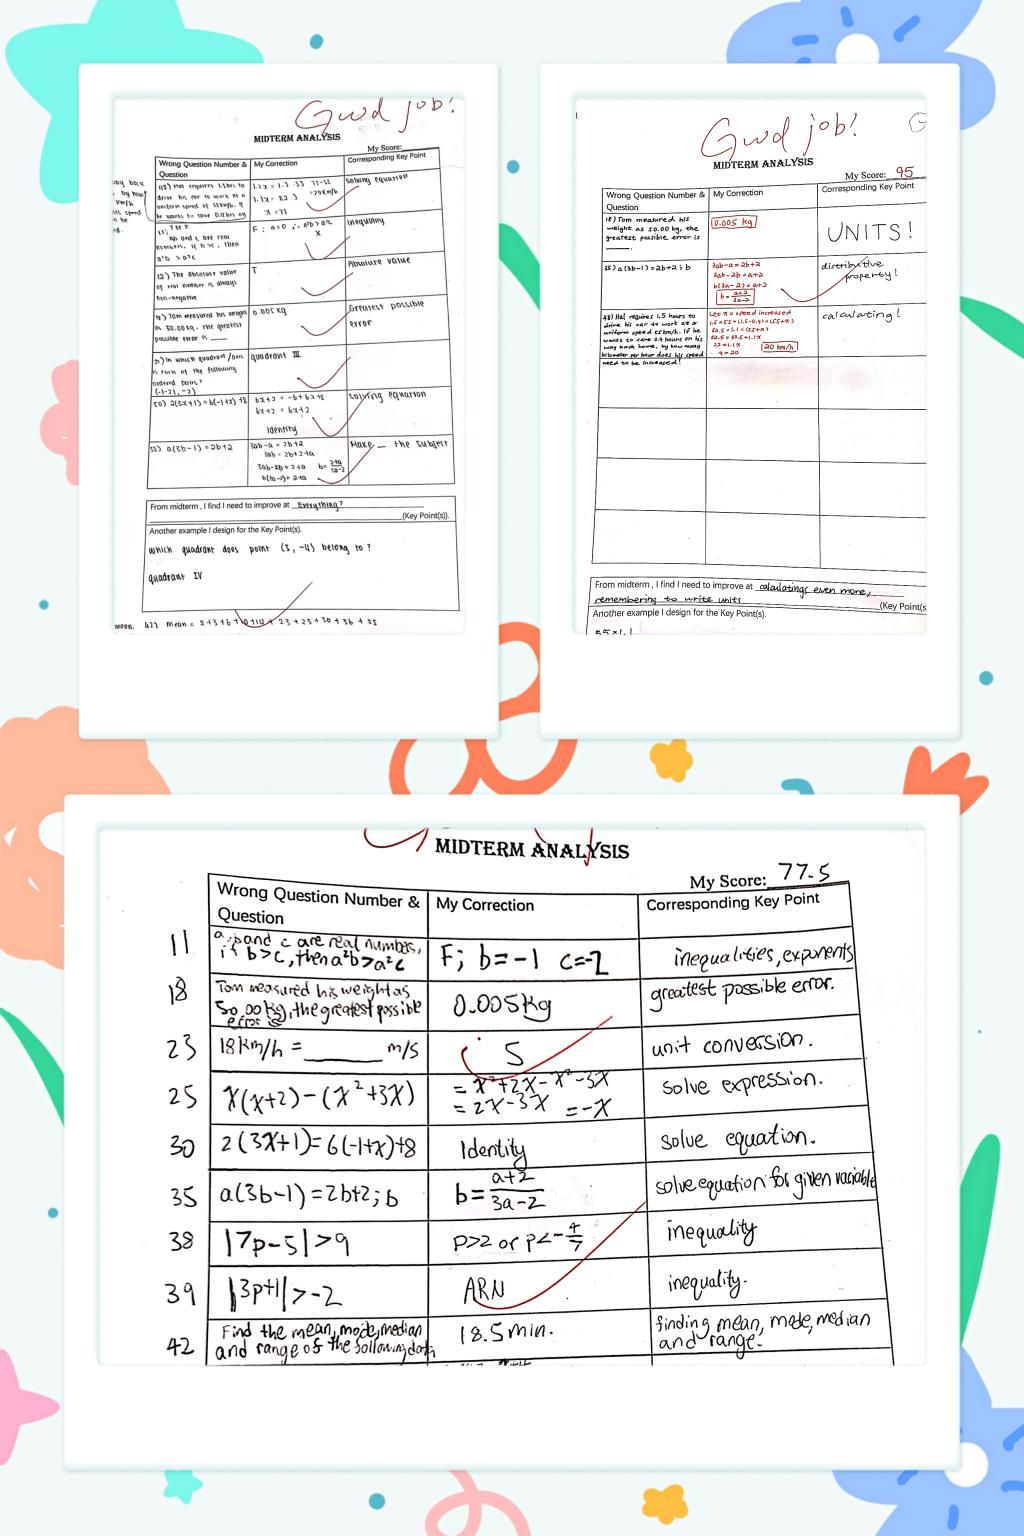 Good job!
MIDTERM ANALYSIS
My Score:
Wrong Question Number & Question
My Correction
Corresponding Key Point
Solving equation
F; a=0
Inequality
12) The absolute value
of real number is always
non-negative
T
Absolute value
18) Tom measured his weight
as 50.00 kg, the greatest
possible error is
0.005 kg
Greatest possible
error
ordered pairs?
quadrant III
30) 2(3x+1)=6(-1+x)+8
6x+2 = -6+6x+8
6x+2 = 6x+2
Identity
Solving equation
35) a(3b-1)=2b+2
3ab-a=2b+2
3ab=2b+2+a
3ab-2b=2+a
b(3a-2)=2+a
Make _ the subject
From midterm, I find I need to improve at Everything?
(Key Point(s)).
Another example I design for the Key Point(s).
Which quadrant does point (3,-4) belong to?
quadrant IV
Good job!
MIDTERM ANALYSIS
My Score: 95
Wrong Question Number & Question
My Correction
Corresponding Key Point
18) Tom measured his
weight as 50.00 kg, the
greatest possible error is
0.005 kg
UNITS!
35) a(3b-1)=2b+2; b
3ab-a=2b+2
3ab-2b=a+2
b(3a-2)=a+2
b=a+2/3a-2
distributive
property!
48) Hal requires 1.5 hours to
drive his car to work at a
uniform speed 55km/h. If he
wants to save 0.4 hours on his
way back home, by how many
kilometer per hour does his speed
need to be increased?
Let x = speed increased
1.5×55=(1.5-0.4)×(55+x)
82.5=1.1×(55+x)
82.5=60.5+1.1x
22=1.1x
x=20
20 km/h
calculating!
From midterm, I find I need to improve at calculatings even more,
remembering to write units
(Key Point(s
Another example I design for the Key Point(s).
MIDTERM ANALYSIS
My Score: 77.5
Wrong Question Number &
Question
My Correction
Corresponding Key Point
11
a, b and c are real numbers,
if b>c, then a²b>a²c
F; b=-1 c=-2
inequalities, exponents
18
Tom measured his weight as
50.00kg, the greatest possible
error is
0.005kg
greatest possible error.
23
18km/h = ______ m/s
5
unit conversion.
25
x(x+2)-(x²+3x)
=x²+2x-x²-3x
=2x-3x =-x
solve expression.
30
2(3x+1)=6(-1+x)+8
Identity
solve equation.
35
a(3b-1)=2b+2; b
b=a+2/3a-2
solve equation for given variable
38
|7p-5|>9
p>2 or p<-4/7
inequality
39
|3p+1|>-2
ARN
inequality.
42
Find the mean, mode, median
and range of the following data
18.5min.
finding mean, mode, median
and range.